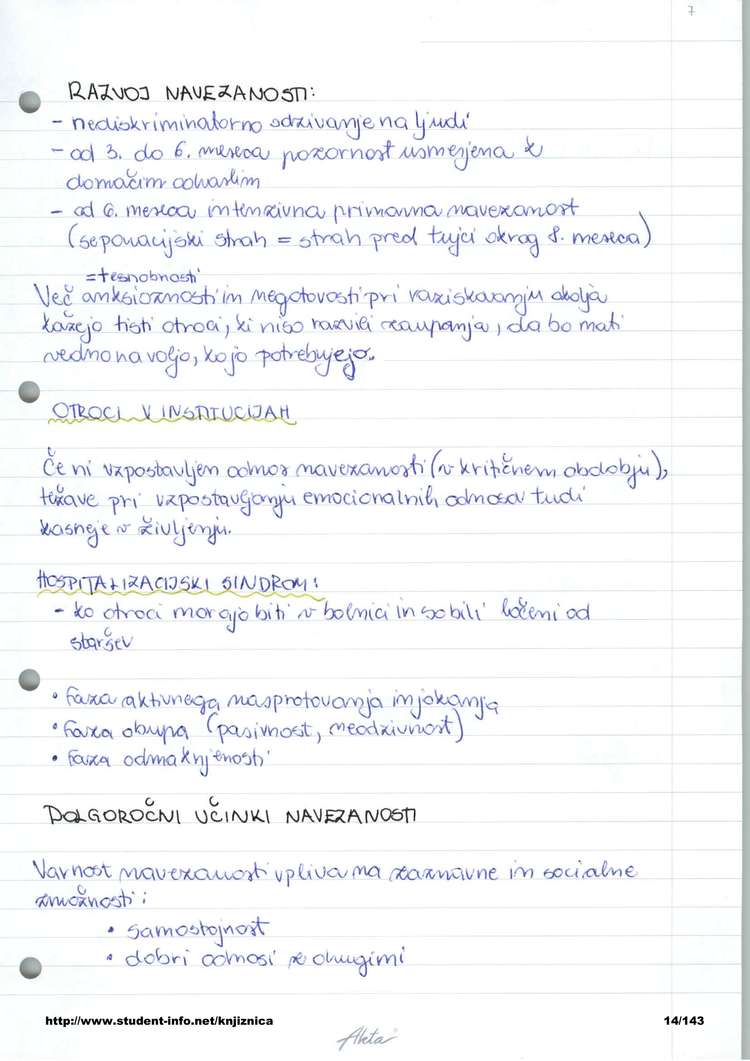 7
RAZVOJ NAVEZANOSTI:
- nediskriminatorno odzivanje na ljudi
- od 3. do 6. meseca pozornost usmerjena k
domačim odraslim
- od 6. meseca intenzivna primarna navezanost
(separacijski strah = strah pred tujci okrog 8. meseca)
=tesnobnosti
Več anksioznosti in negotovosti pri raziskovanju okolja
kažejo tisti otroci, ki niso razvili zaupanja, da bo mati
vedno na voljo, ko jo potrebujejo.
OTROCI V INSTITUCIJAH
Če ni vzpostavljen odnos navezanosti (v kritičnem obdobju),
težave pri vzpostavljanju emocionalnih odnosov tudi
kasneje v življenju.
HOSPITALIZACIJSKI SINDROM:
- ko otroci morajo biti v bolnici in so bili ločeni od
staršev
• faza aktivnega nasprotovanja in jokanja
• faza obupa (pasivnost, neodzivnost)
• faza odmaknjenosti
DOLGOROČNI UČINKI NAVEZANOSTI
Varnost navezanosti vpliva na zaznavne in socialne
zmožnosti:
• samostojnost
• dobri odnosi z drugimi
http://www.student-info.net/knjiznica
14/143
Akta